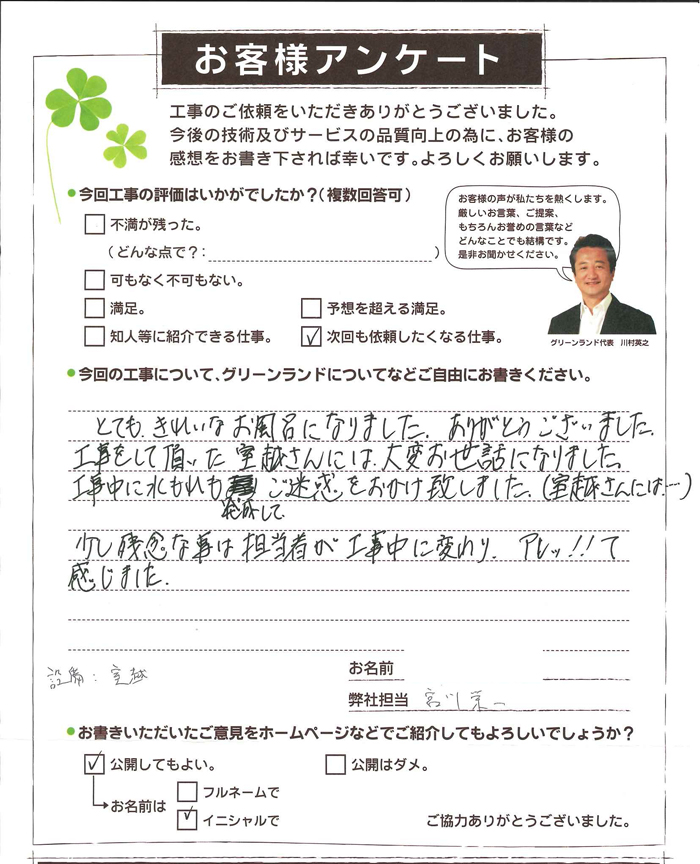 お客様アンケート
工事のご依頼をいただきありがとうございました。
今後の技術及びサービスの品質向上の為に、お客様の
感想をお書き下されば幸いです。よろしくお願いします。
今回工事の評価はいかがでしたか？（複数回答可）
不満が残った。
（どんな点で？：　）
可もなく不可もない。
満足。
予想を超える満足。
知人等に紹介できる仕事。
次回も依頼したくなる仕事。
お客様の声が私たちを熱くします。
厳しいお言葉、ご提案、
もちろんお誉めの言葉など
どんなことでも結構です。
是非お聞かせください。
グリーンランド代表　川村英之
今回の工事について、グリーンランドについてなどご自由にお書きください。
とても きれいな お風呂になりました。ありがとうございました。
工事をして頂いた 室越さんには 大変お世話になりました。
工事中に水もれも ご迷惑をおかけ致しました。（室越さんには…）
発生して
少し残念な事は 担当者が 工事中に変わり、アレッ!!て
感じました。
設備：室越
お名前
弊社担当 宮川栄一
お書きいただいたご意見をホームページなどでご紹介してもよろしいでしょうか？
公開してもよい。
公開はダメ。
お名前は
フルネームで
イニシャルで
ご協力ありがとうございました。